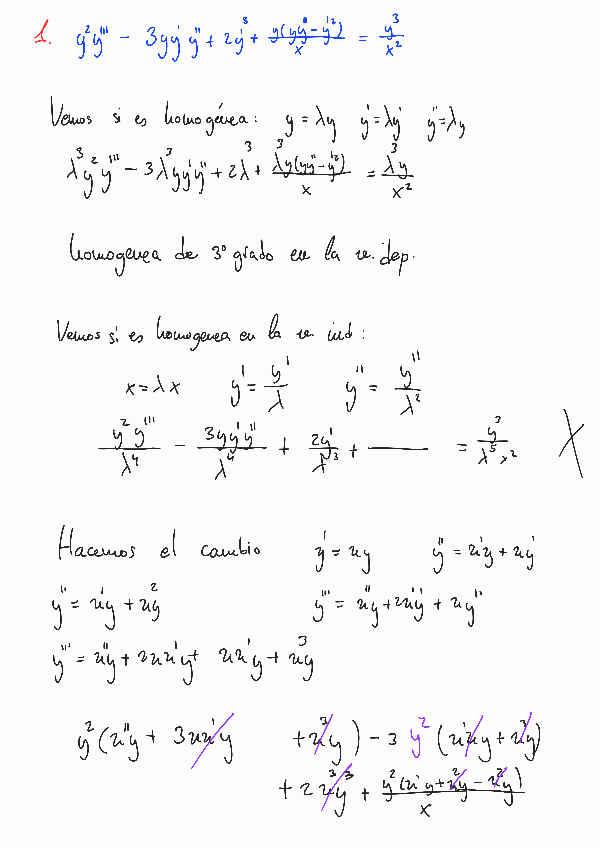 1. y²y''' - 3yy'y'' + 2y'³ + y(yy'' - y'²)/x = y³/x²
Vemos si es homogénea: y = λy y' = λy' y'' = λy
λ³y²y''' - 3λ³yy'y'' + 2λ³ + λ³y(yy'' - y'²)/x = λ³y/x²
homogenea de 3º grado en la v. dep.
Vemos si es homogenea en la v. ind:
x = λx y' = y'/λ y'' = y''/λ²
y²y'''/λ⁴ - 3yy'y''/λ⁴ + 2y'/λ³ + ——— = y³/λ⁵x² X
Hacemos el cambio y' = uy y'' = u'y + uy'
y'' = u'y + uy² y''' = u''y + 2u'y' + uy''
y''' = u''y + 2uu'y + uu'y + u³y
y²(u''y + 3uu'y + u³y) - 3y²(u'uy + u³y)
+ 2u³y³ + y²(u'y + u²y - u²y)/x